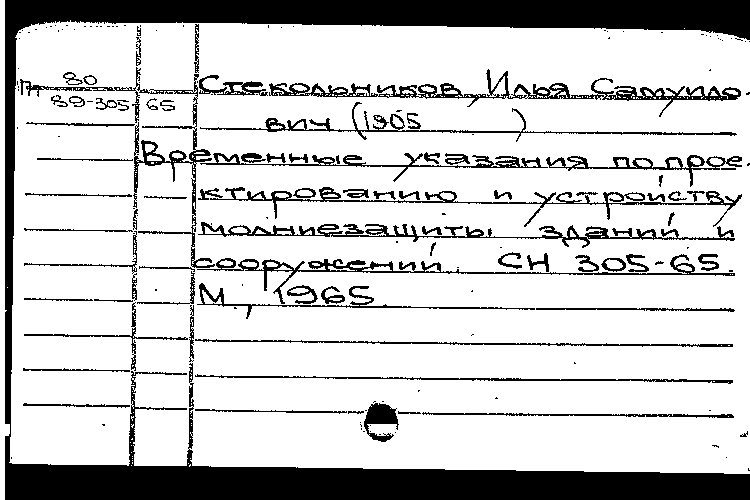 80
П7
89-305-65
Стекольников, Илья Самуило-
вич (1905 )
Временные указания по прое-
ктированию и устройству
молниезащиты зданий и
сооружений. СН 305-65.
М., 1965